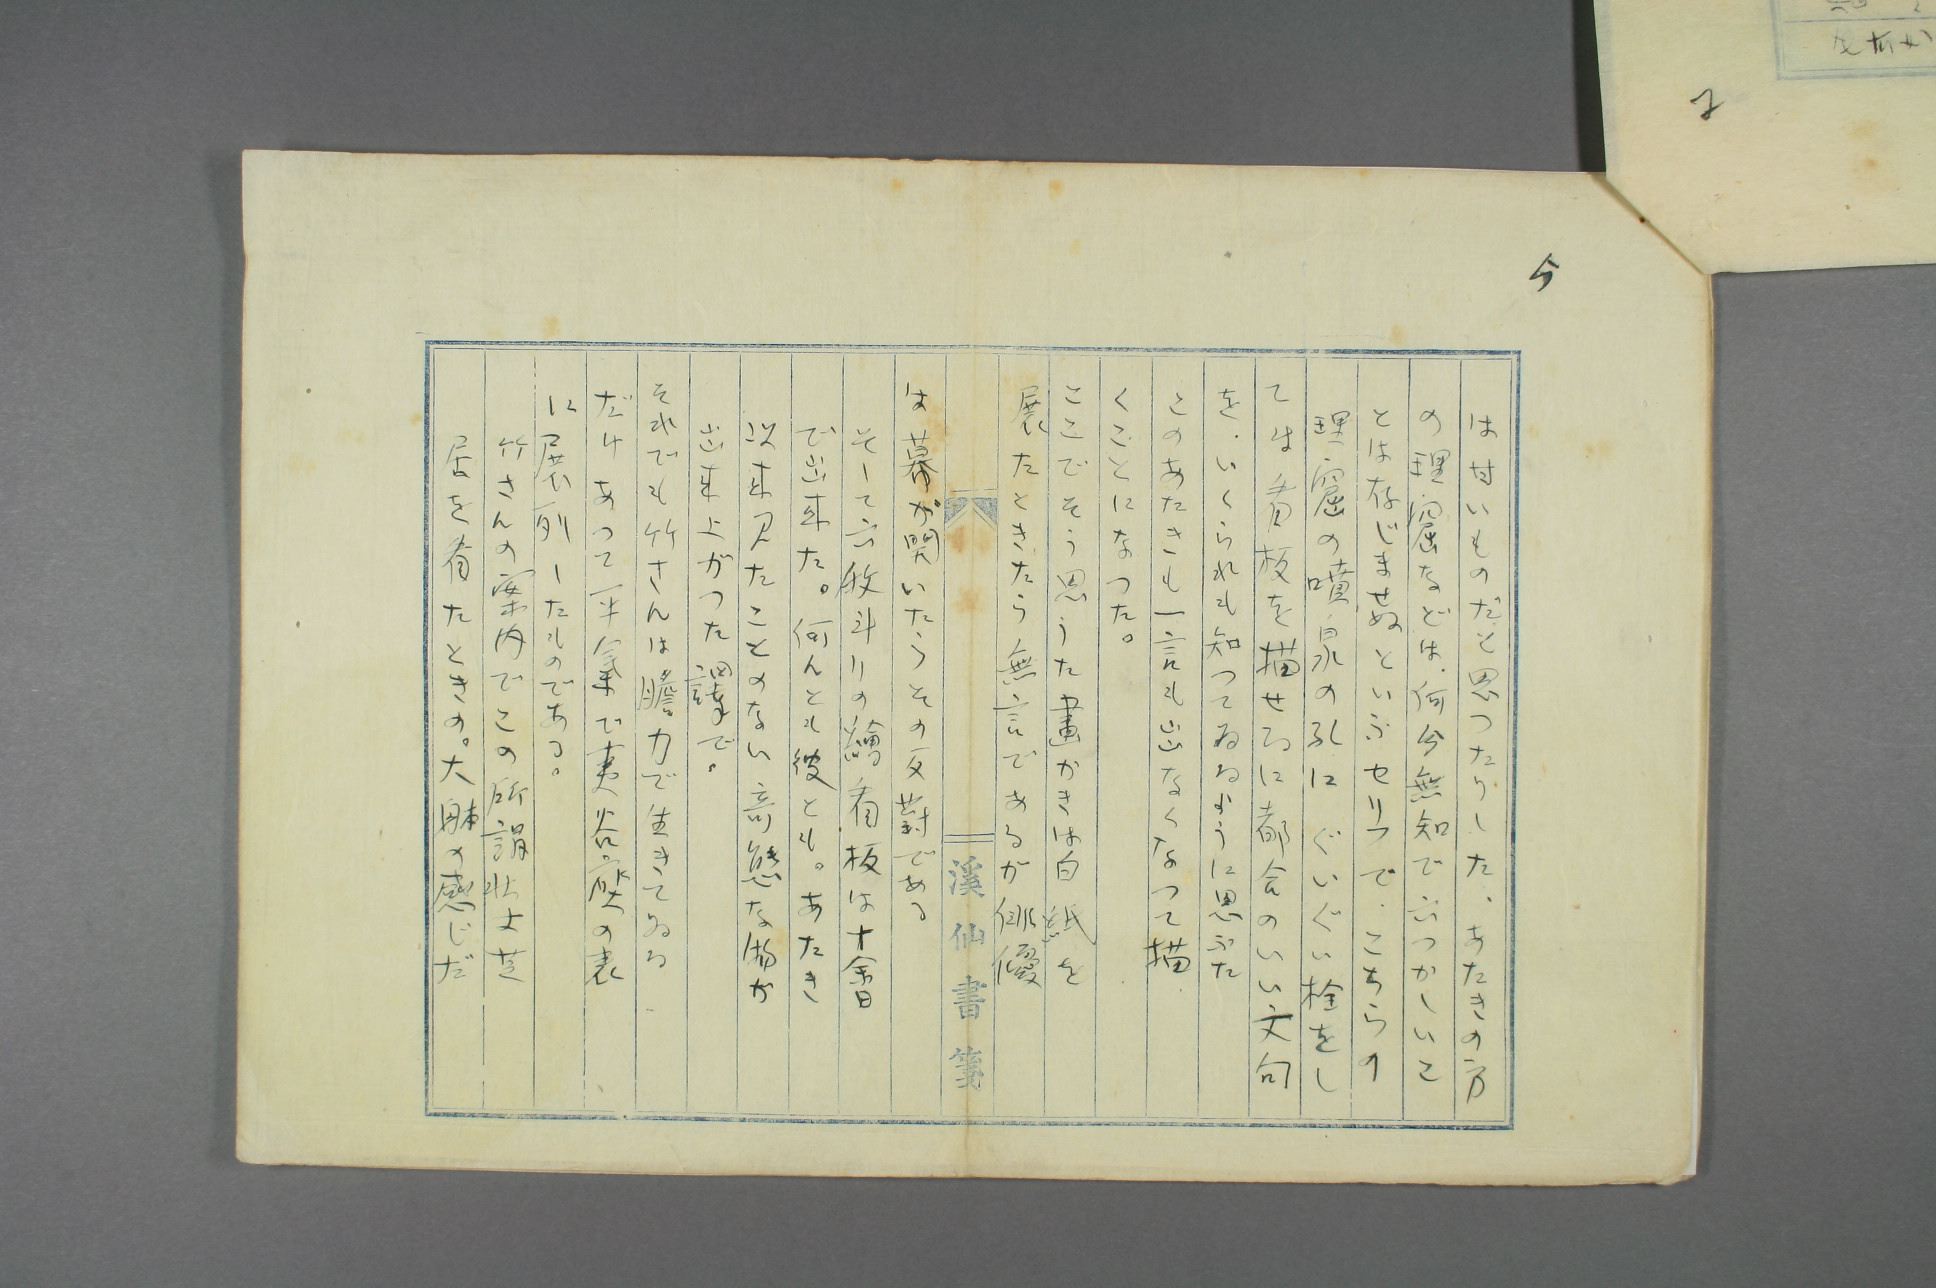 5
は甘いものだと思つたりした、あたきの方
の理窟などは、何分無知で六つかしいこ
とは存じませぬといふセリフで、こちらの
理窟の噴泉の孔にぐいぐい栓をし
ては看板を描せるに都合のいい文句
を、いくられも知つてゐるように思ふた
とのあたきも一言も出なくなつて描
くことになつた。
ここでそう思うた畫かきは白紙を
展たときたら無言であるが俳優
は幕が開いたらその反對である
そして六枚斗りの繪看板は十余日
で出来た。何んとも彼とも。あたき
以来見たことのない奇態な物が
出来上がつた譯で。
それでも竹さんは膽力で生きてゐる
だけあつて平氣で夷谷座の表
に展列したものである。
竹さんの案内でこの所謂壯士芝
居を看たときの。大躰の感じだ
溪仙書箋